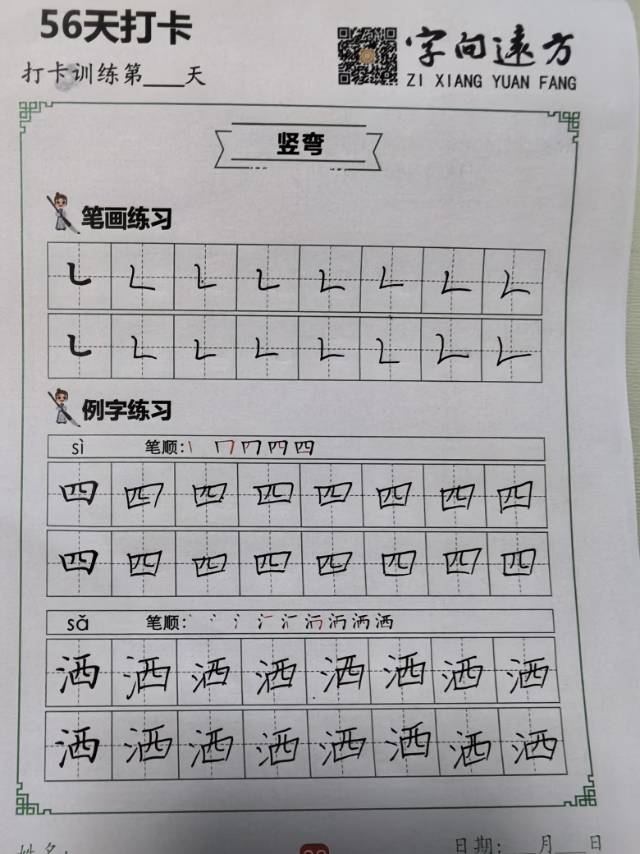 56天打卡
字向远方
打卡训练第___天
ZI XIANG YUAN FANG
竖弯
笔画练习
㇄ ㇄ ㇄ ㇄ ㇄ ㇄ ㇄ ㇄
㇄ ㇄ ㇄ ㇄ ㇄ ㇄ ㇄ ㇄
例字练习
sì 笔顺: 四
四 四 四 四 四 四 四 四
四 四 四 四 四 四 四 四
sǎ 笔顺: 洒
洒 洒 洒 洒 洒 洒 洒 洒
洒 洒 洒 洒 洒 洒 洒 洒
姓名: 日期:___月___日